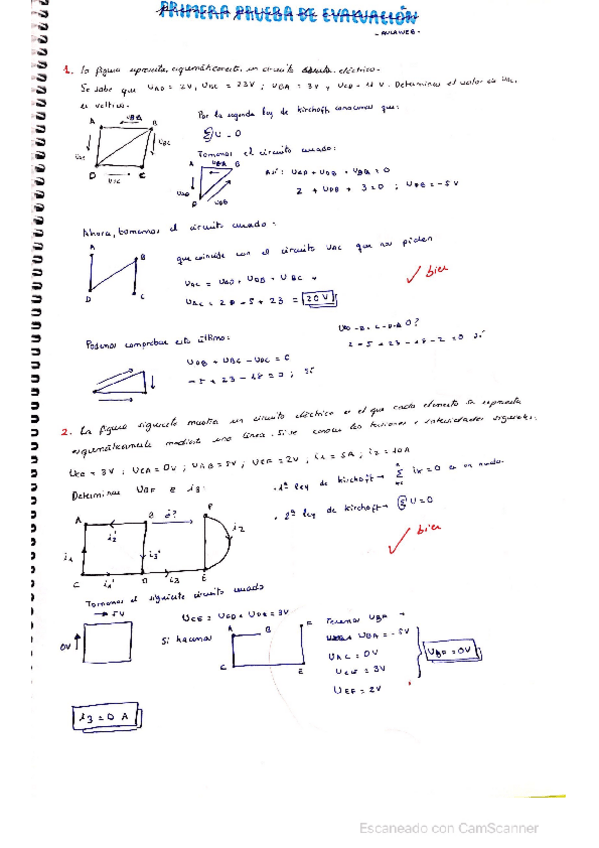 PRIMERA PRUEBA DE EVALUACIÓN
- AULAWEB -
1. La figura representa, esquemáticamente, un circuito eléctrico.
Se sabe que UAD = 2V, UBC = 23V ; UBA = 3V y . Determinar el valor de UAC
en voltios.
Por la segunda ley de kirchoff conocemos que:
ΣU = 0
Tomamos el circuito cuadro:
Así: UAD + UDB + UBA = 0
2 + UDB + 3 = 0 ; UDB = -5 V
A
B
UBA
UBC
D
C
UDC
A
B
UBA
UAD
D
UDB
Ahora, tomamos el circuito cuadro:
que coincide con el circuito UAC que nos piden
A
B
D
C
UAC = UAD + UDB + UBC
UAC = 2 - 5 + 23 = 20 V
✓ bien
Podemos comprobar esto último:
UDB + UBC - UDC = 0
-5 + 23 - 18 = 0 ; sí
2 - 5 + 23 - 18 - 2 = 0 sí
2. La figura siguiente muestra un circuito eléctrico en el que cada elemento se representa
esquemáticamente mediante una línea. Si se conocen las tensiones e intensidades siguientes:
UCE = 3V ; UCA = 0V ; UAB = 5V ; UEF = 2V , i1 = 5A ; i2 = 10A
Determinar UBF e i3:
. 1ª ley de kirchoff → Σ ik = 0 en un nudo.
. 2ª ley de kirchoff → ΣU = 0
✓ bien
A
B
¿?
F
i2'
i2
i1
i3'
C
i1'
D
i3
E
Tomamos el siguiente circuito cuadro
→ 5V
0V
UCE = UCD + UDE = 3V
Si hacemos
A
B
F
C
E
Tenemos UBF →
UBA = -5V
UAC = 0V
UCE = 3V
UEF = 2V
UBF = 0V
i3 = 0 A
Escaneado con CamScanner